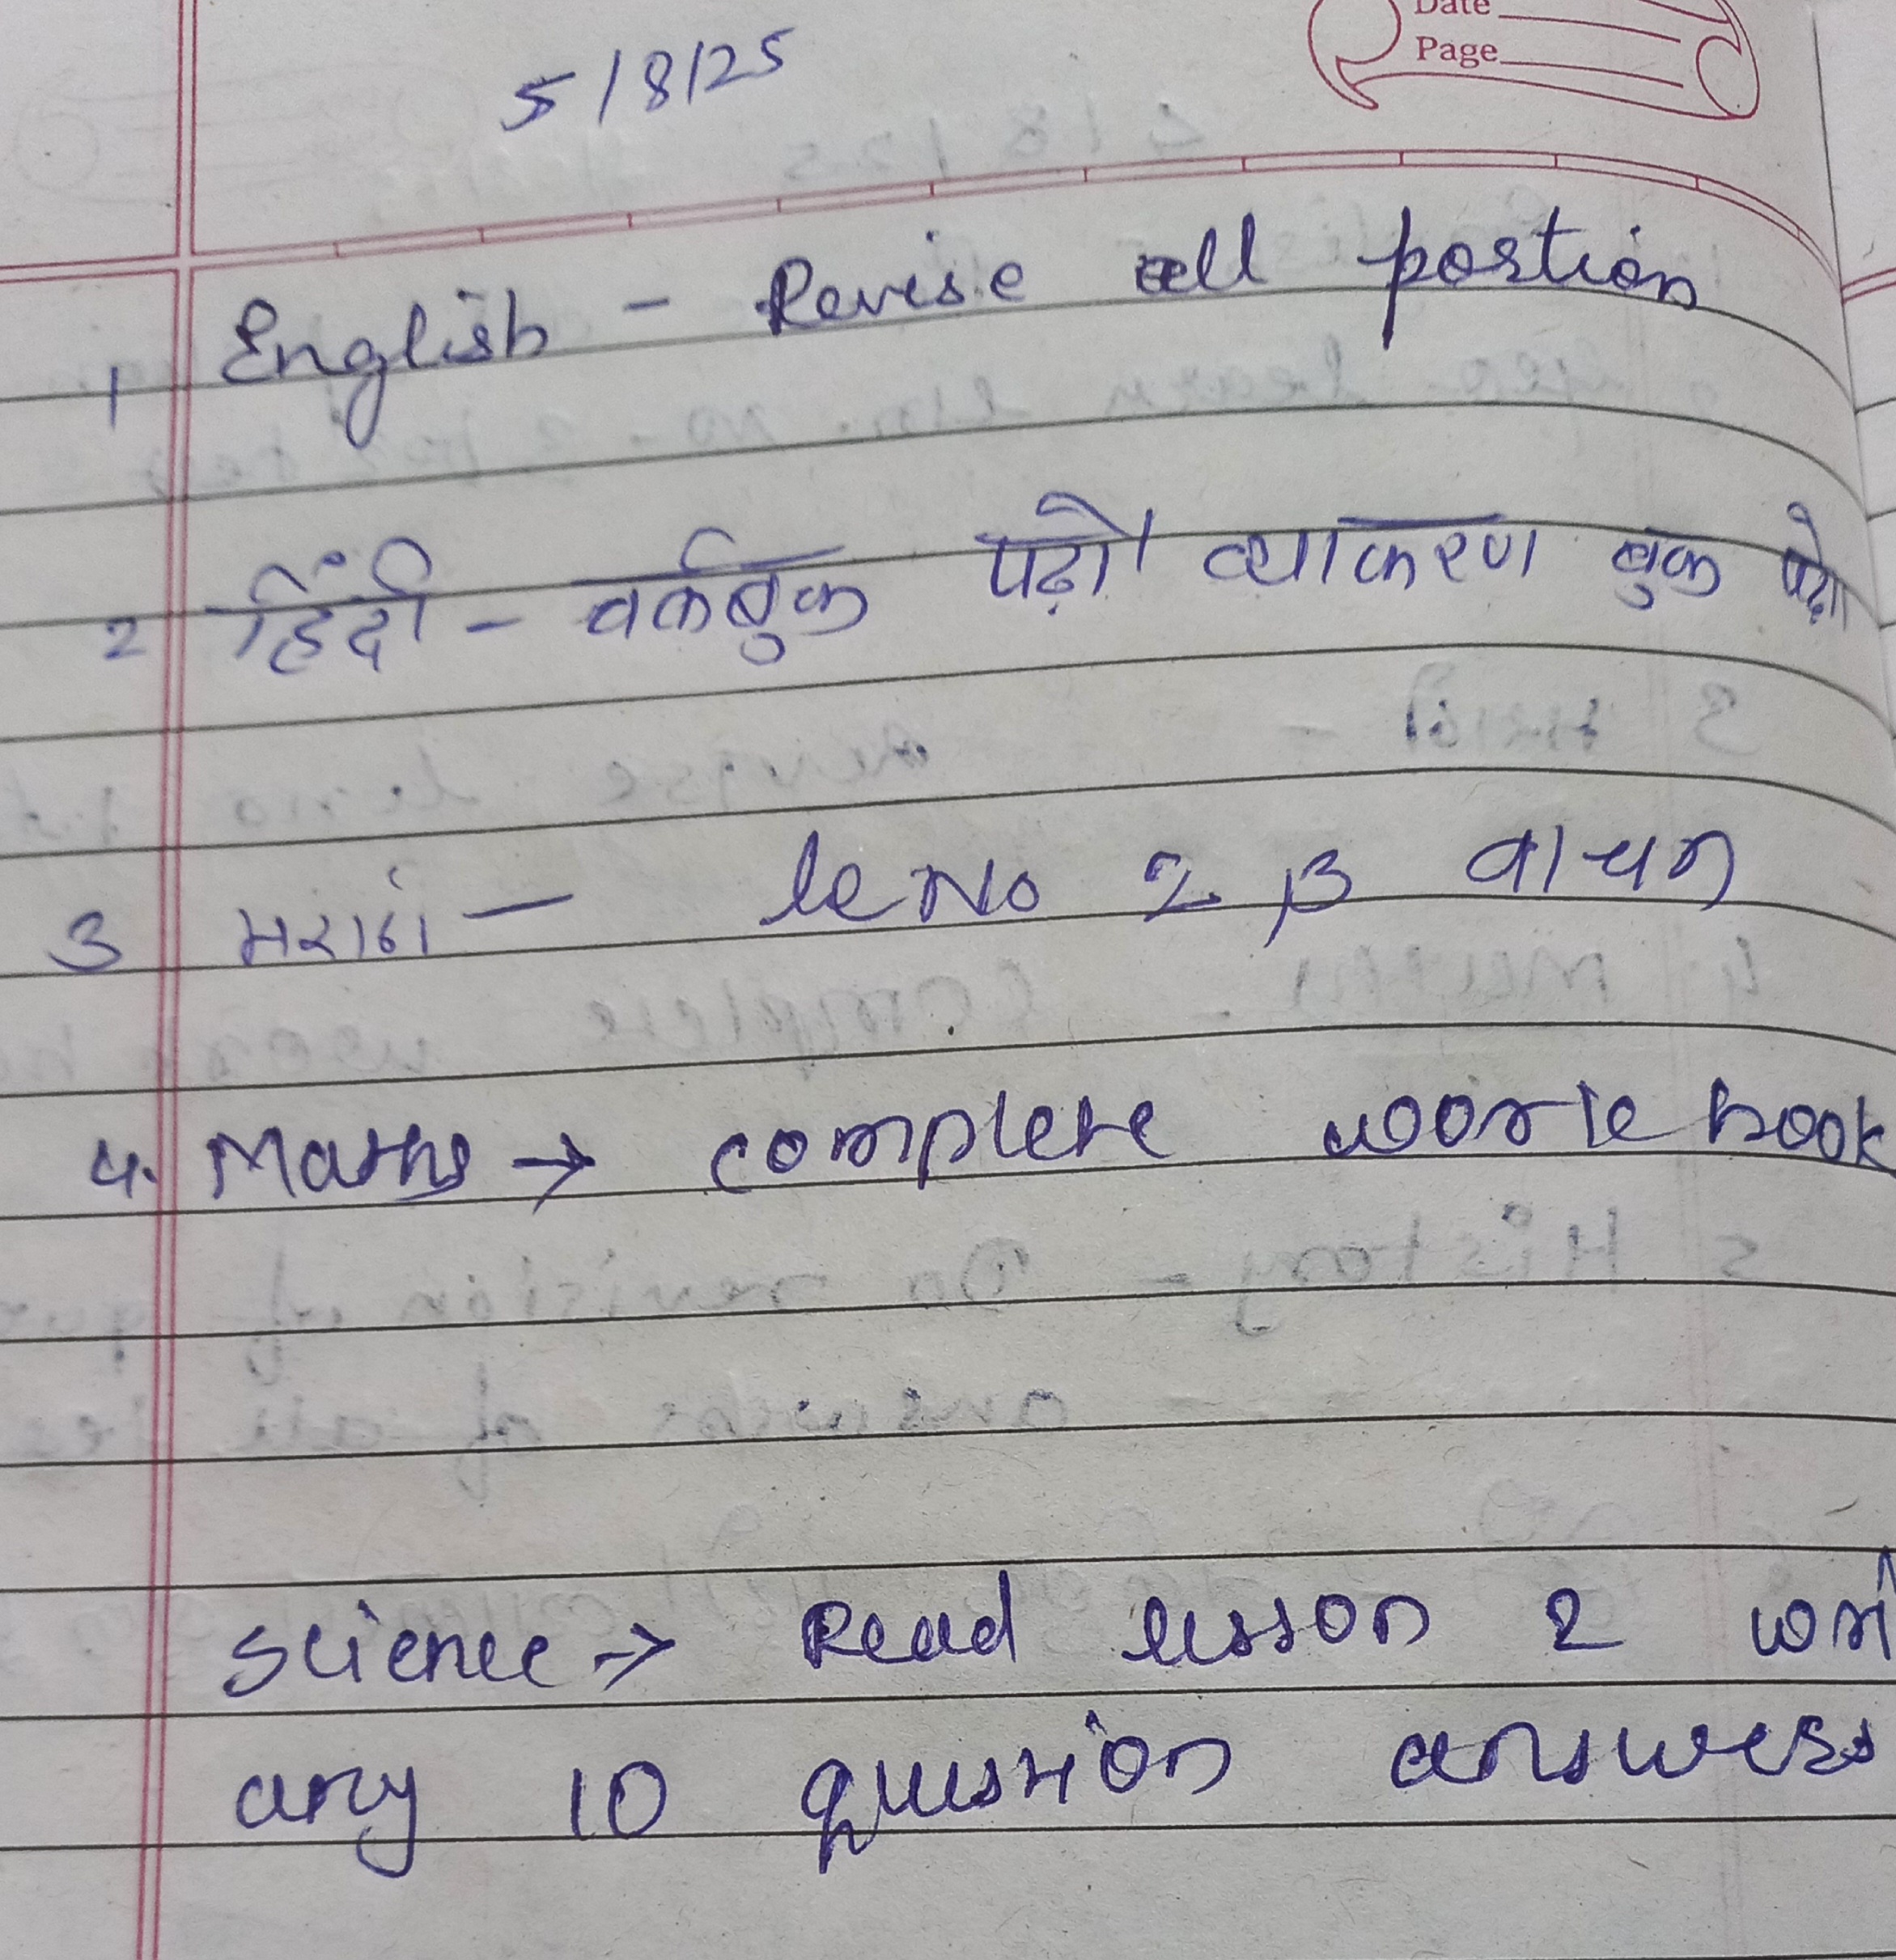 Date
Page
5/8/25
1 English - Revise all portion
2 हिंदी - वर्कबुक पढ़ो। व्याकरण बुक पढ़ो
3 मराठी - le No 2,3 वाचन
4. Maths → complete woork book
Science → Read lesson 2 wri
any 10 question answers